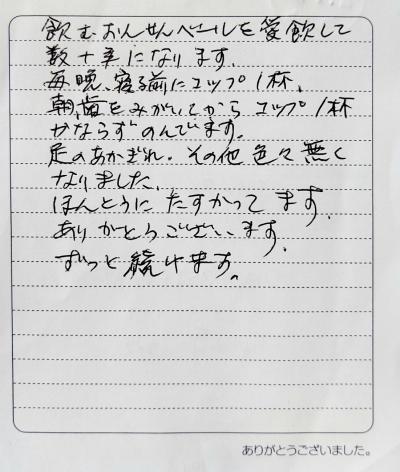 飲むおんせんベールを愛飲して
数十年になります。
毎晩、寝る前にコップ1杯、
朝、歯をみがいてから コップ1杯
かならずのんでいます。
足のあかぎれ、その他色々無く
なりました。
ほんとうに たすかってます。
ありがとうございます。
ずっと続けます。
ありがとうございました。